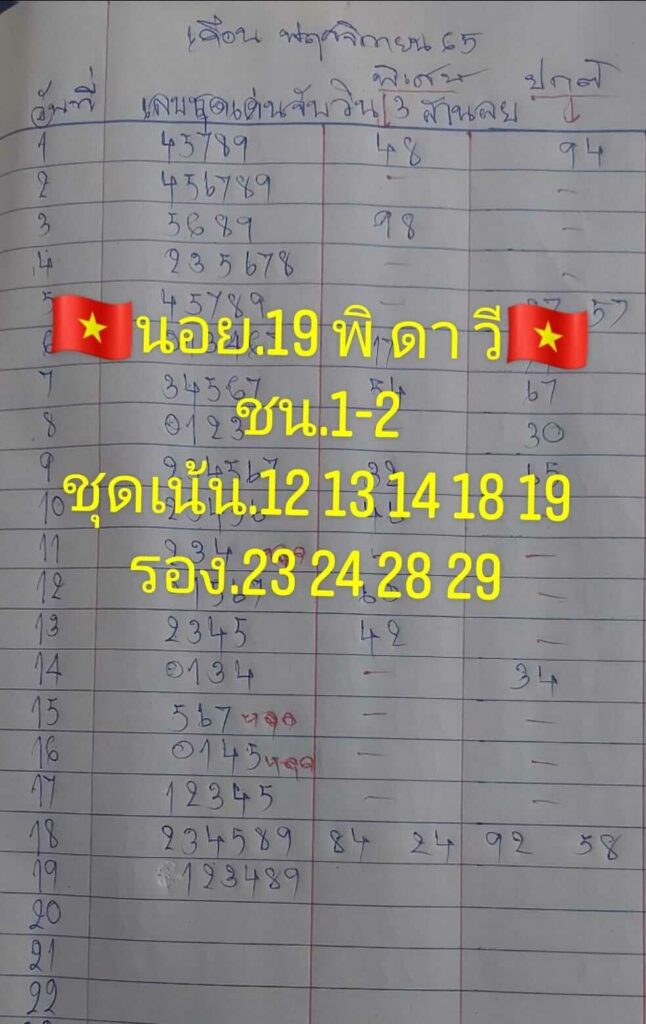 เดือน พฤศจิกายน 65
พิเศษ ปกติ
วันที่ เลขชุดเด่นจับวิน 3 สานลย
1 45789 48 94
2 456789 - -
3 5689 98 -
4 235678 - -
5 45789 - 57
นอย.19 พิ ดา วี
6
7 34567 54 67
ชน.1-2
8 0123 30
9 234567
ชุดเน้น.12 13 14 18 19
10
11 234 หลุด - -
รอง.23 24 28 29
12 -
13 2345 42 -
14 0134 - 34
15 567 หลุด - -
16 0145 หลุด - -
17 12345 - -
18 234589 84 24 92 58
19 123489
20
21
22